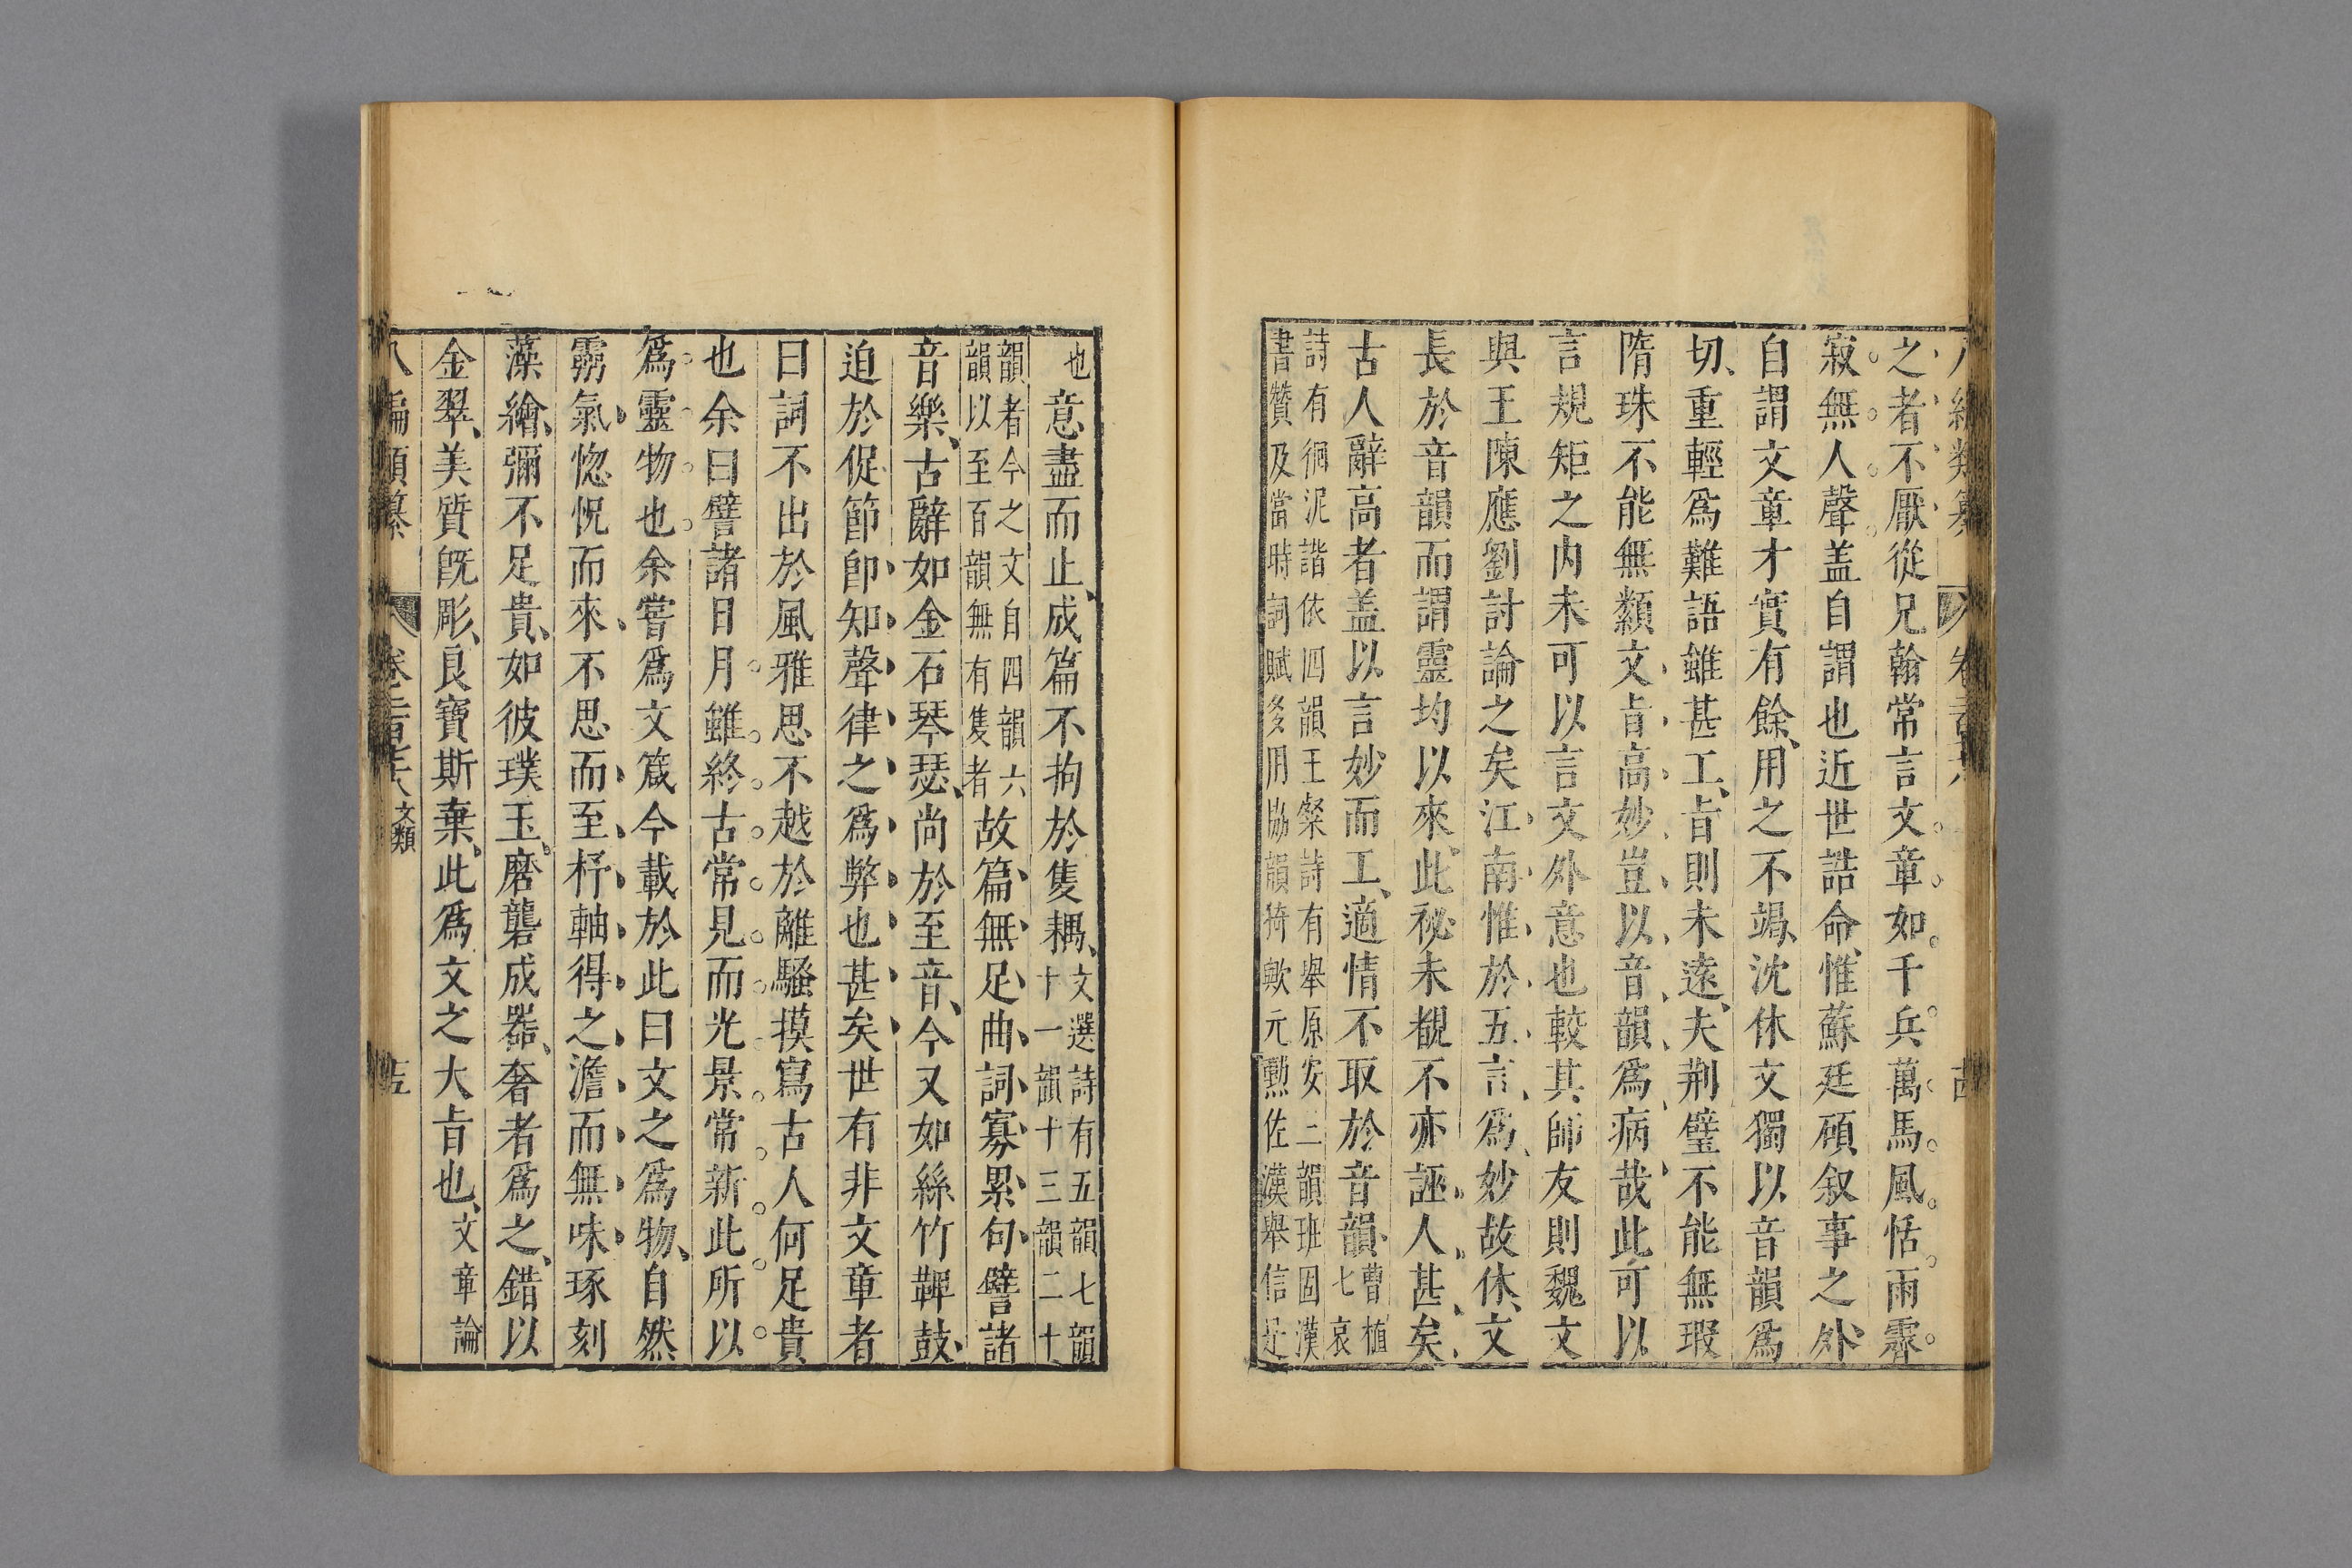 之者不厭從兄翰常言文章如千兵萬馬風恬雨霽
寂無人聲盖自謂也近世誥命惟蘇廷碩叙事之外
自謂文章才實有餘用之不竭沈休文獨以音韻爲
切重輕爲難語雖甚工旨則未遠夫荆璧不能無瑕
隋珠不能無纇文旨高妙豈以音韻爲病哉此可以
言規矩之内未可以言文外意也較其師友則魏文
與王陳應劉討論之矣江南惟於五言爲妙故休文
長於音韻而謂靈均以來此祕未覩不亦誣人甚矣
古人辭高者盖以言妙而工適情不取於音韻曹植七哀
詩有徊泥諧依四韻王粲詩有舉原安二韻班固漢
書贊及當時詞賦多用協韻猗歟元勳佐漢舉信是
也意盡而止成篇不拘於隻耦文選詩有五韻七韻
十一韻十三韻二十
韻者今之文自四韻六
韻以至百韻無有隻者故篇無足曲詞寡累句譬諸
音樂古辭如金石琴瑟尚於至音今又如絲竹鞞鼓
迫於促節卽知聲律之爲弊也甚矣世有非文章者
曰詞不出於風雅思不越於離騷摸寫古人何足貴
也余曰譬諸日月雖終古常見而光景常新此所以
爲靈物也余嘗爲文箴今載於此曰文之爲物自然
靈氣惚怳而來不思而至杼軸得之澹而無味琢刻
藻繪彌不足貴如彼璞玉磨礱成器奢者爲之錯以
金翠美質旣彫良寶斯棄此爲文之大旨也文章論
八編類纂
文類